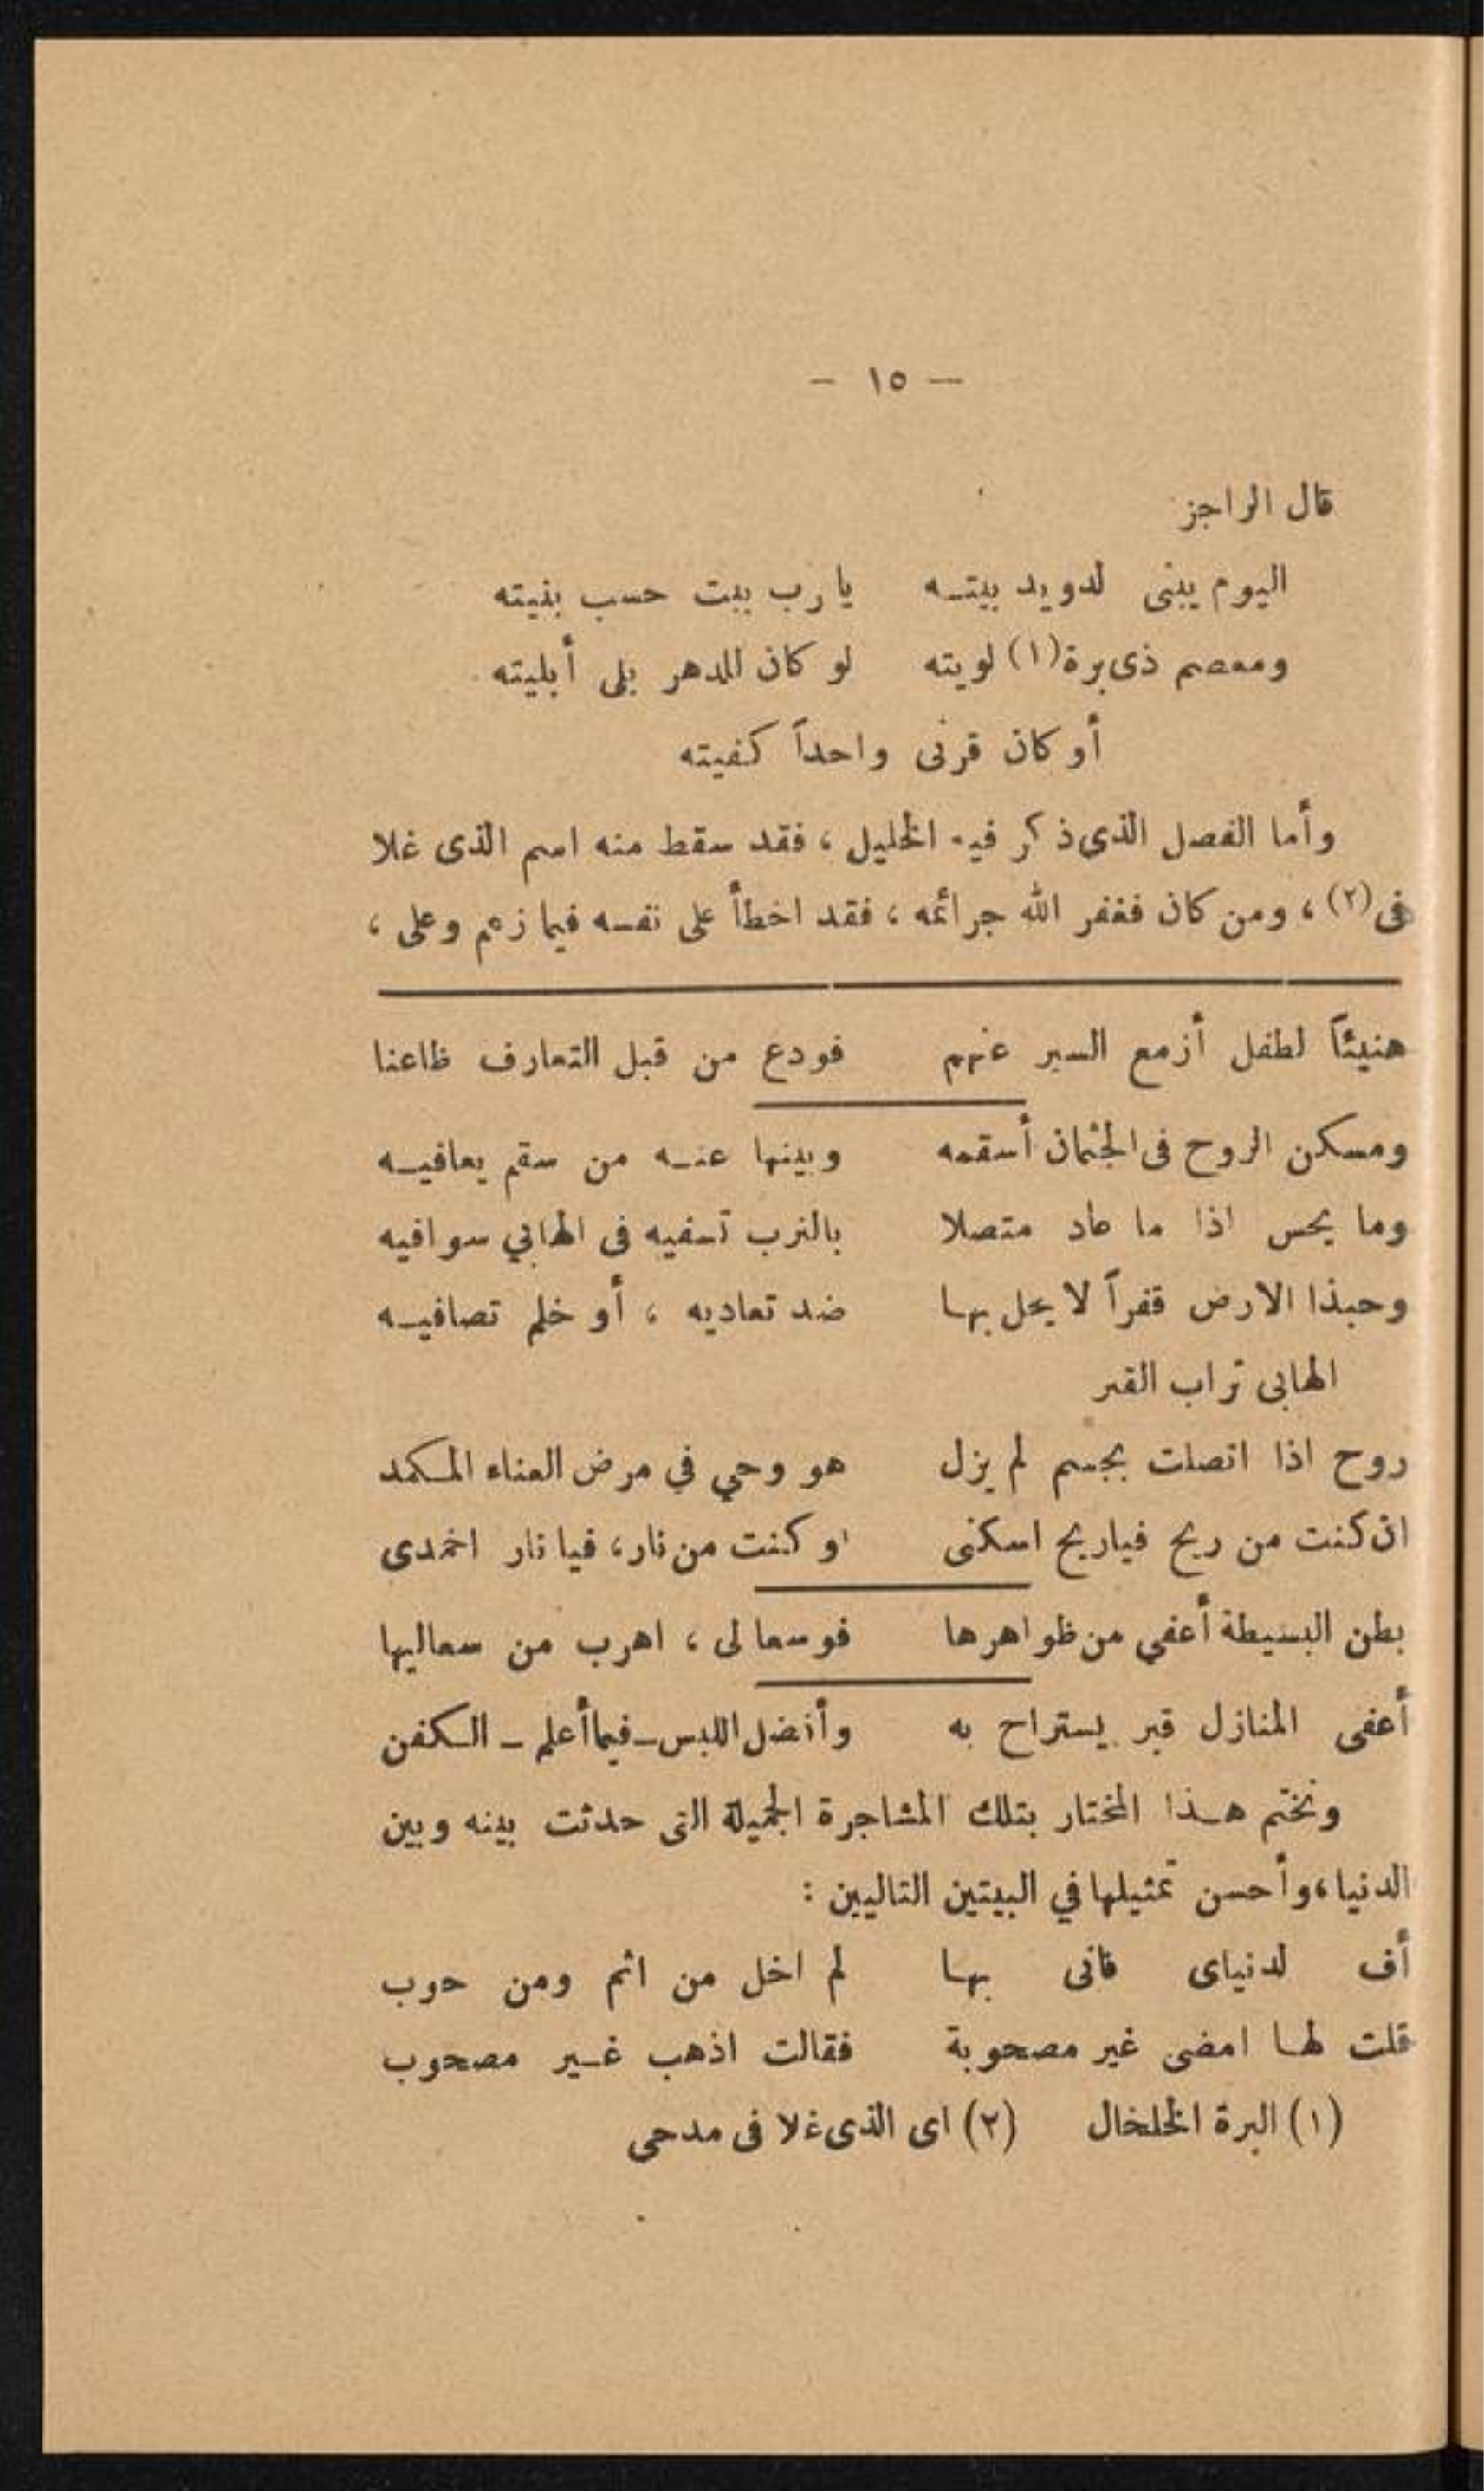 — ١٥ —
قال الراجز
اليوم يبنى لدويد بيتـه يارب بيت حسب بنيته
ومعصم ذى برة(١) لويته لو كان للدهر بلى أبليته
أو كان قرنى واحداً كفيته
وأما الفصل الذى ذكر فيه الخليل ، فقد سقط منه اسم الذى غلا
فى(٢) ، ومن كان فغفر الله جرائمه ، فقد اخطأ على نفسه فيما زعم وعلى ،
هنيئاً لطفل أزمع السير عنهم فودع من قبل التعارف ظاعنا
ومسكن الروح فى الجثمان أسقمه وبينها عنـه من سقم يعافيـه
وما يحس اذا ما عاد متصلا بالترب تسفيه فى الهابي سوافيه
وحبذا الارض قفراً لا يحل بهـا ضد تعاديه ، أو خلم تصافيـه
الهابى تراب القبر
روح اذا اتصلت بجسم لم يزل هو وحي في مرض العناء المـكمد
ان كنت من ريح فياريح اسكنى او كنت من نار ، فيا نار اخمدى
بطن البسيطة أعفي من ظواهرها فوسعا لى ، اهرب من سعاليها
أعفى المنازل قبر يستراح به وأفضل اللبس ــ فيما أعلم ــ الـكفن
ونختم هـذا المختار بتلك المشاجرة الجميلة التى حدثت بينه وبين
الدنيا ، وأحسن تمثيلها في البيتين التاليين :
أف لدنياى فانى بهـا لم اخل من اثم ومن حوب
قلت لهـا امضى غير مصحوبة فقالت اذهب غـير مصحوب
(١) البرة الخلخال (٢) اى الذى غلا فى مدحى